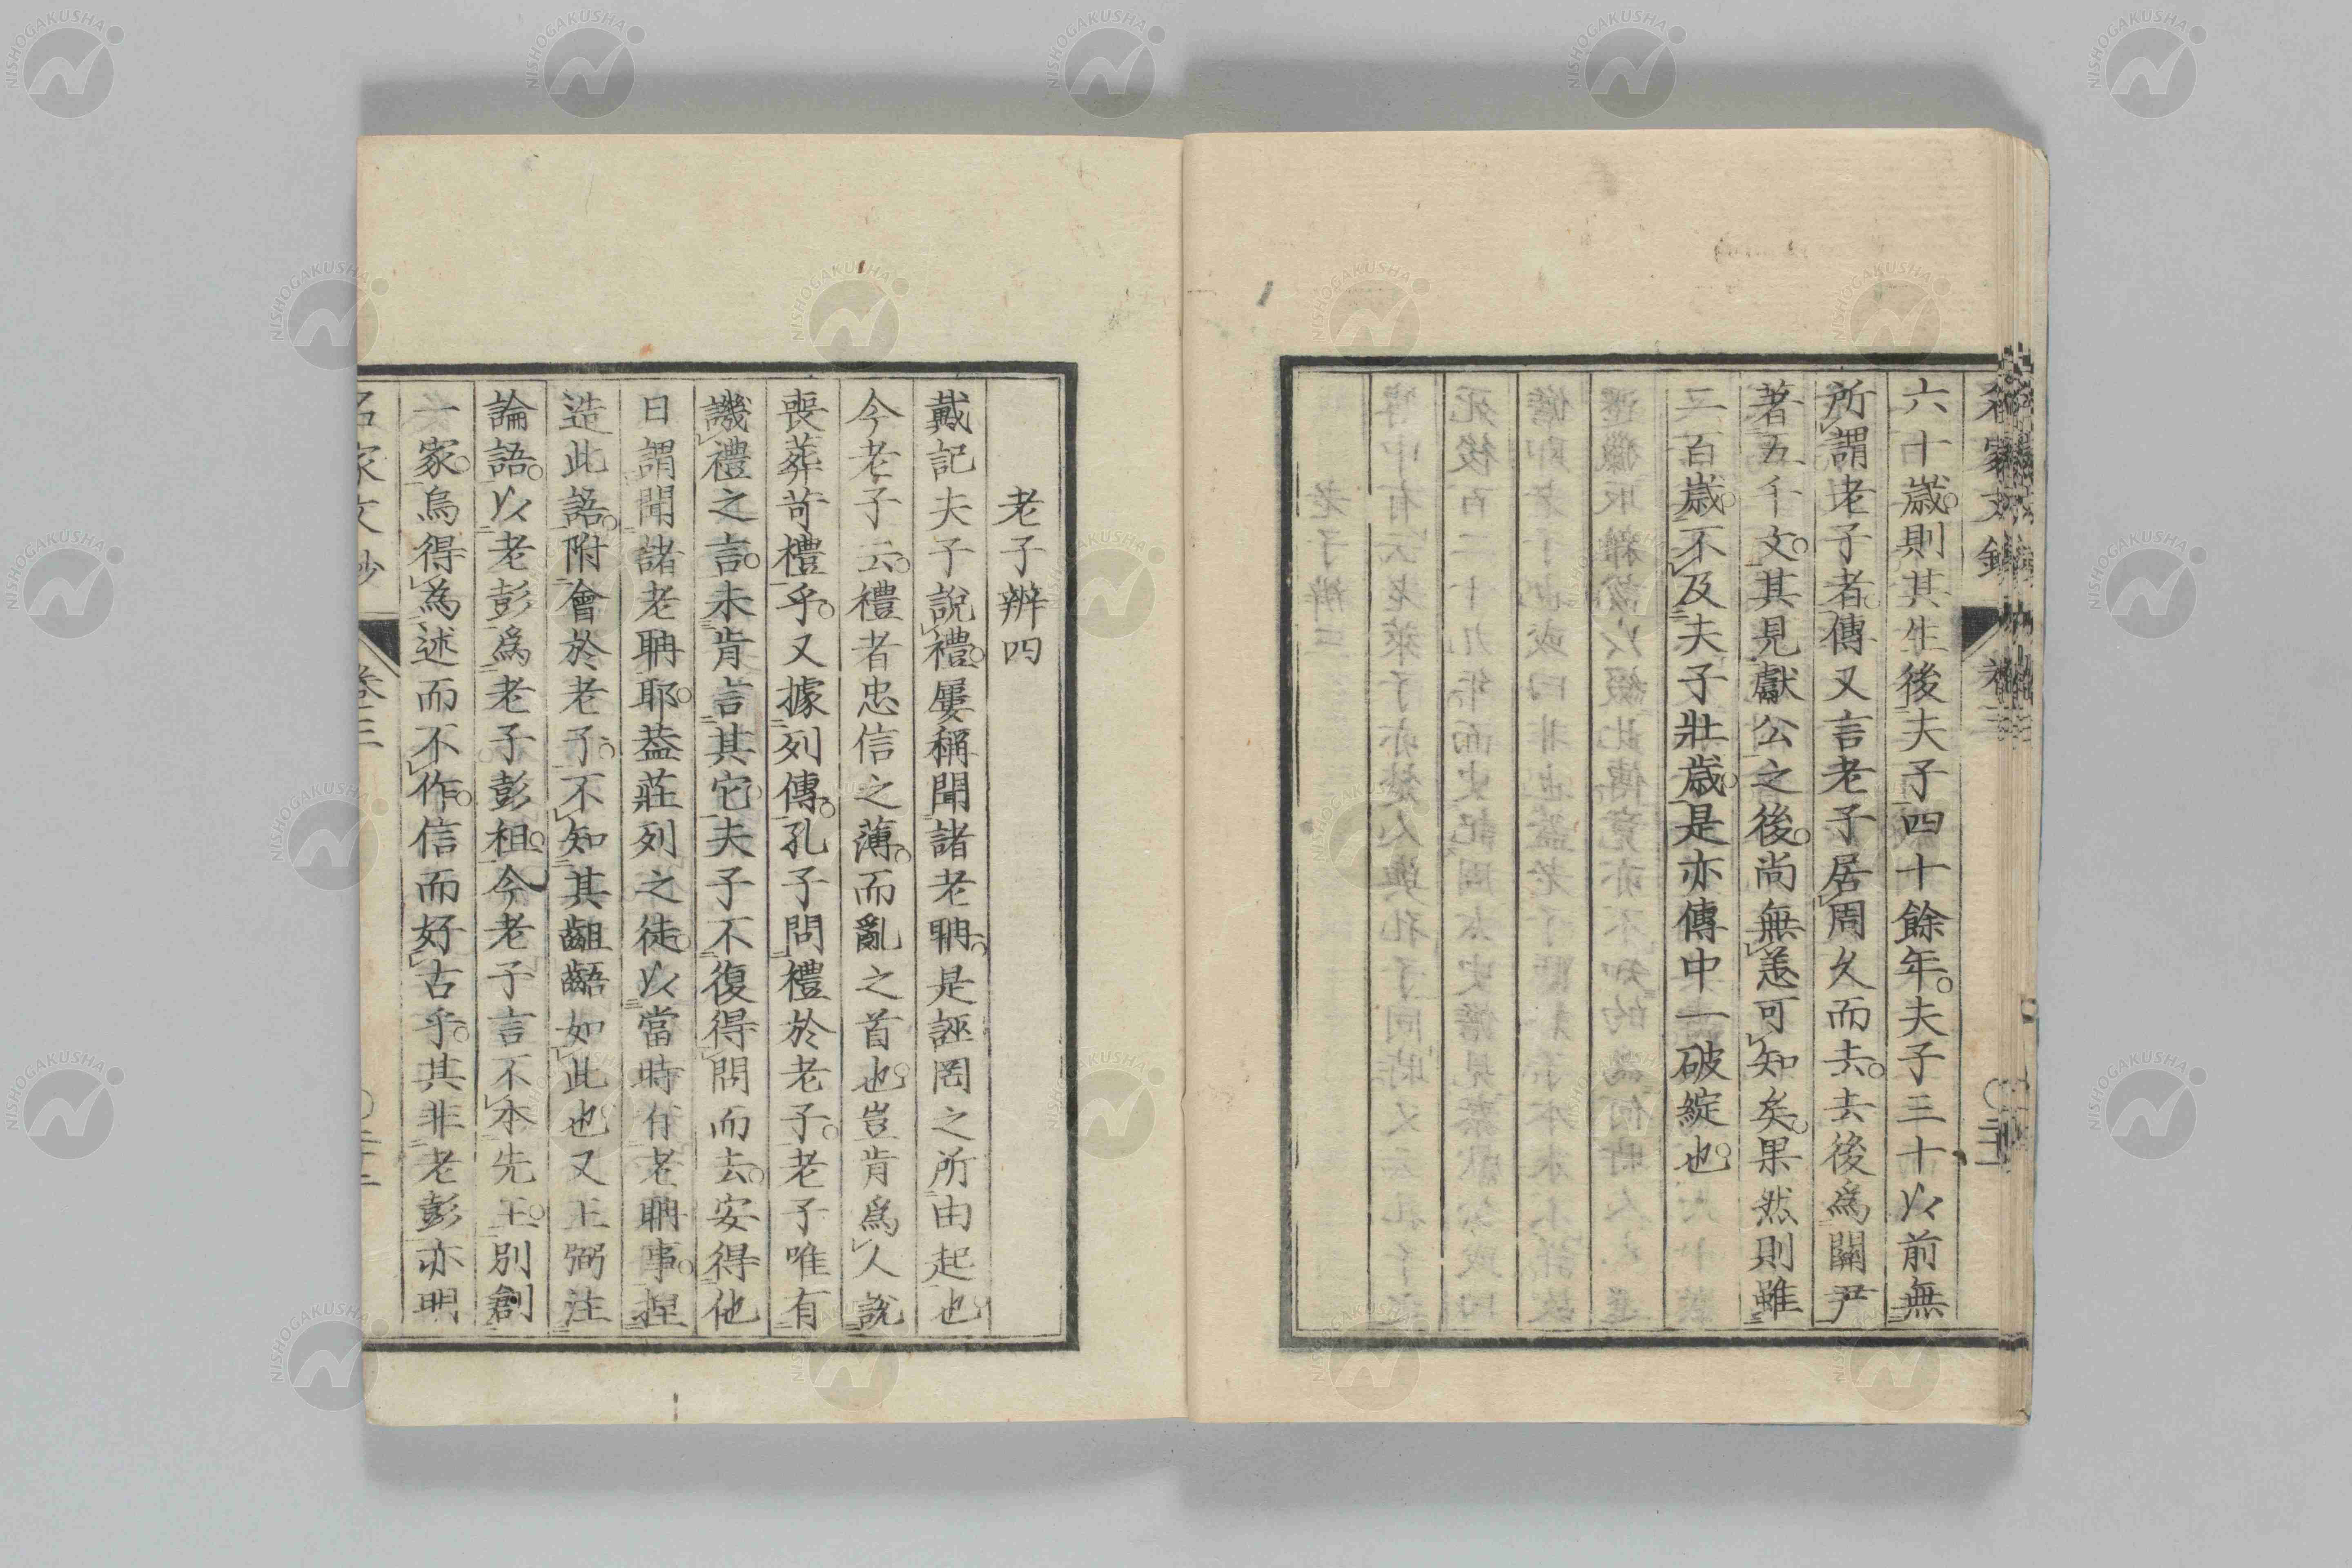 六十歲則其生後夫子四十餘年夫子三十以前無
所謂老子者傳又言老子居周久而去去後爲關尹
著五千文其見獻公之後尚無恙可知矣果然則雖
二百歲不及夫子壯歲是亦傳中一破綻也
老子辨四
戴記夫子說禮屢稱聞諸老聃是誣罔之所由起也
今老子云禮者忠信之薄而亂之首也豈肯爲人說
喪葬苛禮乎又據列傳孔子問禮於老子老子唯有
譏禮之言未肯言其它夫子不復得問而去安得他
日謂聞諸老聃耶葢莊列之徒以當時有老聃事捏
造此語附會於老子不知其齟齬如此也又王弼注
論語以老彭爲老子彭祖今老子言不本先王別創
一家烏得為述而不作信而好古乎其非老彭亦明
名家文抄
卷三
NISHOGAKUSHA